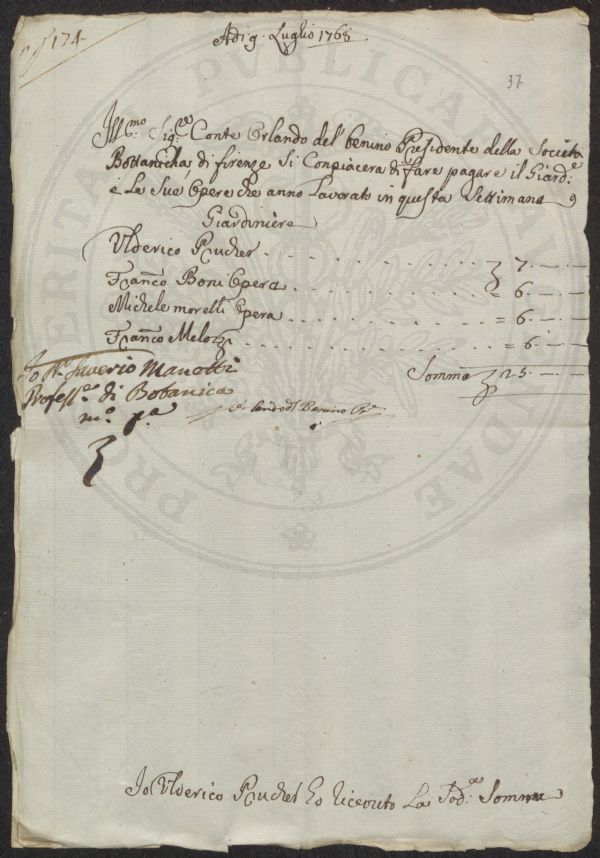 N° 174
Adi 9 Luglio 1768
37
Ill:mo Sig:re Conte Orlando del' Benino Presidente della Società
Bottanicha, di firenze Si Conpiacera di fare pagare il Giard:e
e Le Sue Opere che anno Lavorato in questa Settimana
Giardiniere
Ulderico Prucher . . . 7 . — . —
Franco Boni Opera . . . = 6 . — . —
Michele morelli Opera . . . = 6 . — . —
Franco Melozzi . . . = 6 . — . —
Somma 25 . — . —
Io Saverio Manetti
Profess:re di Botanica
m:o p:a
Orlando del Benino Pre:
Io Ulderico Prucher ho riceuto La Sod:a Somma
PRO VERITATE PVBLICAE